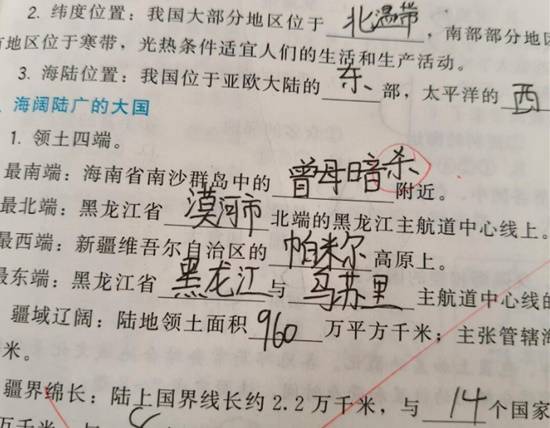 2. 纬度位置：我国大部分地区位于 北温带，南部部分地区
有地区位于寒带，光热条件适宜人们的生活和生产活动。
3. 海陆位置：我国位于亚欧大陆的 东 部，太平洋的 西
海阔陆广的大国
1. 领土四端。
最南端：海南省南沙群岛中的 曾母暗杀 附近。
最北端：黑龙江省 漠河市 北端的黑龙江主航道中心线上。
最西端：新疆维吾尔自治区的 帕米尔 高原上。
最东端：黑龙江省 黑龙江 与 乌苏里 主航道中心线的
疆域辽阔：陆地领土面积 960 万平方千米；主张管辖海
米。
疆界绵长：陆上国界线长约 2.2 万千米，与 14 个国家
万千米，与